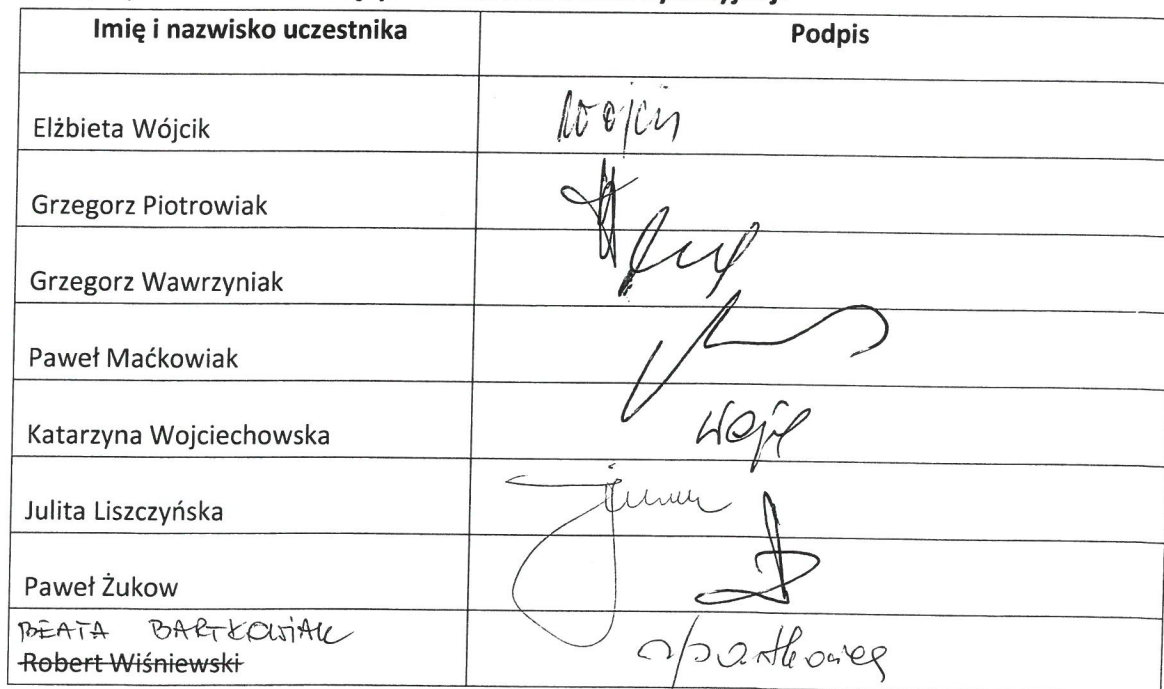 Imię i nazwisko uczestnika Podpis
Elżbieta Wójcik Wójcik
Grzegorz Piotrowiak
Grzegorz Wawrzyniak
Paweł Maćkowiak
Katarzyna Wojciechowska
Julita Liszczyńska
Paweł Żukow
BEATA BARTKOWIAK
Robert Wiśniewski